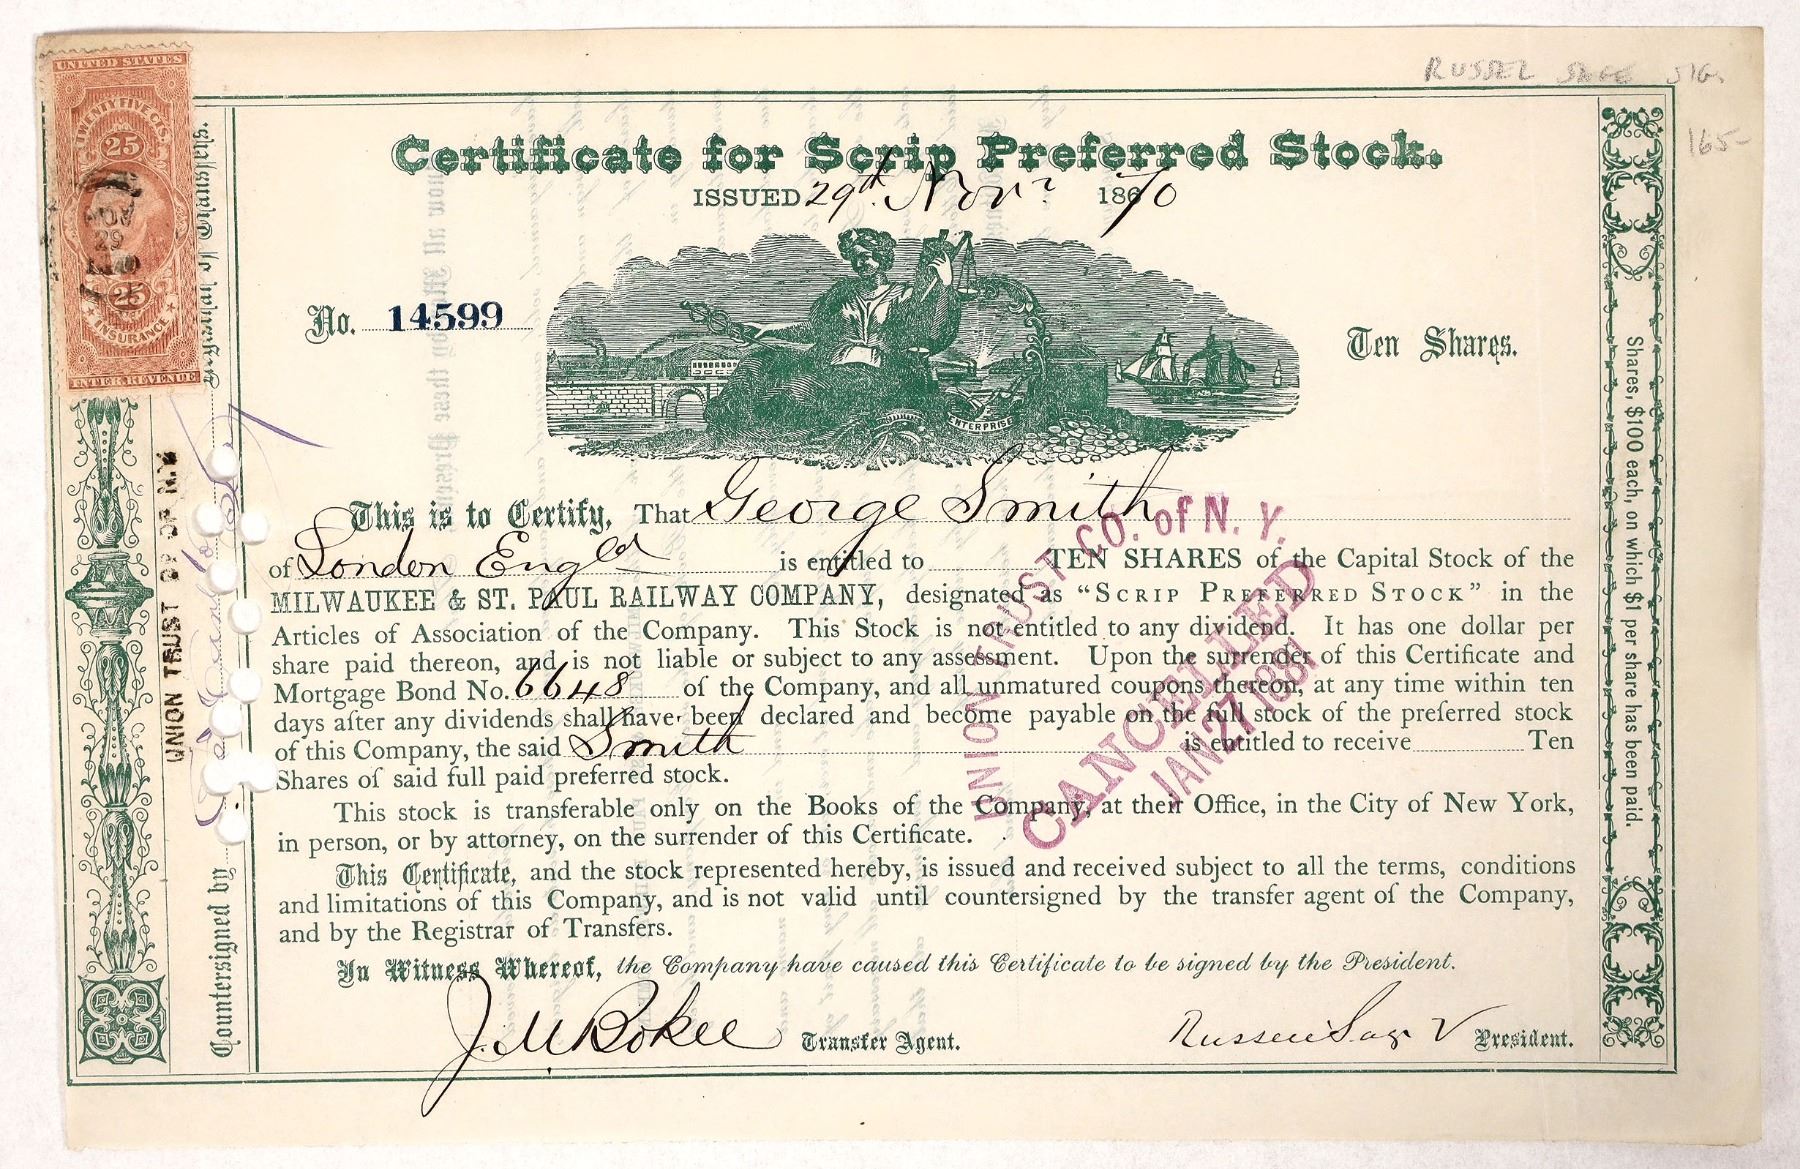 RUSSEL SAGE SIG.
165-
UNITED STATES
TWENTY FIVE CTS.
25
NOV
29
1870
25
INSURANCE
INTER. REVENUE
Certificate for Scrip Preferred Stock.
ISSUED 29th Novr 1870
No. 14599
Ten Shares.
ENTERPRISE
This is to Certify, That George Smith
of London Engld is entitled to TEN SHARES of the Capital Stock of the
MILWAUKEE & ST. PAUL RAILWAY COMPANY, designated as "SCRIP PREFERRED STOCK" in the
Articles of Association of the Company. This Stock is not entitled to any dividend. It has one dollar per
share paid thereon, and is not liable or subject to any assessment. Upon the surrender of this Certificate and
Mortgage Bond No. 6648 of the Company, and all unmatured coupons thereon, at any time within ten
days after any dividends shall have been declared and become payable on the full stock of the preferred stock
of this Company, the said Smith is entitled to receive Ten
Shares of said full paid preferred stock.
This stock is transferable only on the Books of the Company, at their Office, in the City of New York,
in person, or by attorney, on the surrender of this Certificate.
This Certificate, and the stock represented hereby, is issued and received subject to all the terms, conditions
and limitations of this Company, and is not valid until countersigned by the transfer agent of the Company,
and by the Registrar of Transfers.
In Witness Whereof, the Company have caused this Certificate to be signed by the President.
J. M. McKokee Transfer Agent.
Russell Sage V President.
UNION TRUST CO. of N. Y.
CANCELLED
JAN 27 1881
UNION TRUST CO OF N.Y.
Countersigned by
Registrar of Transfers.
Shares, $100 each, on which $1 per share has been paid.